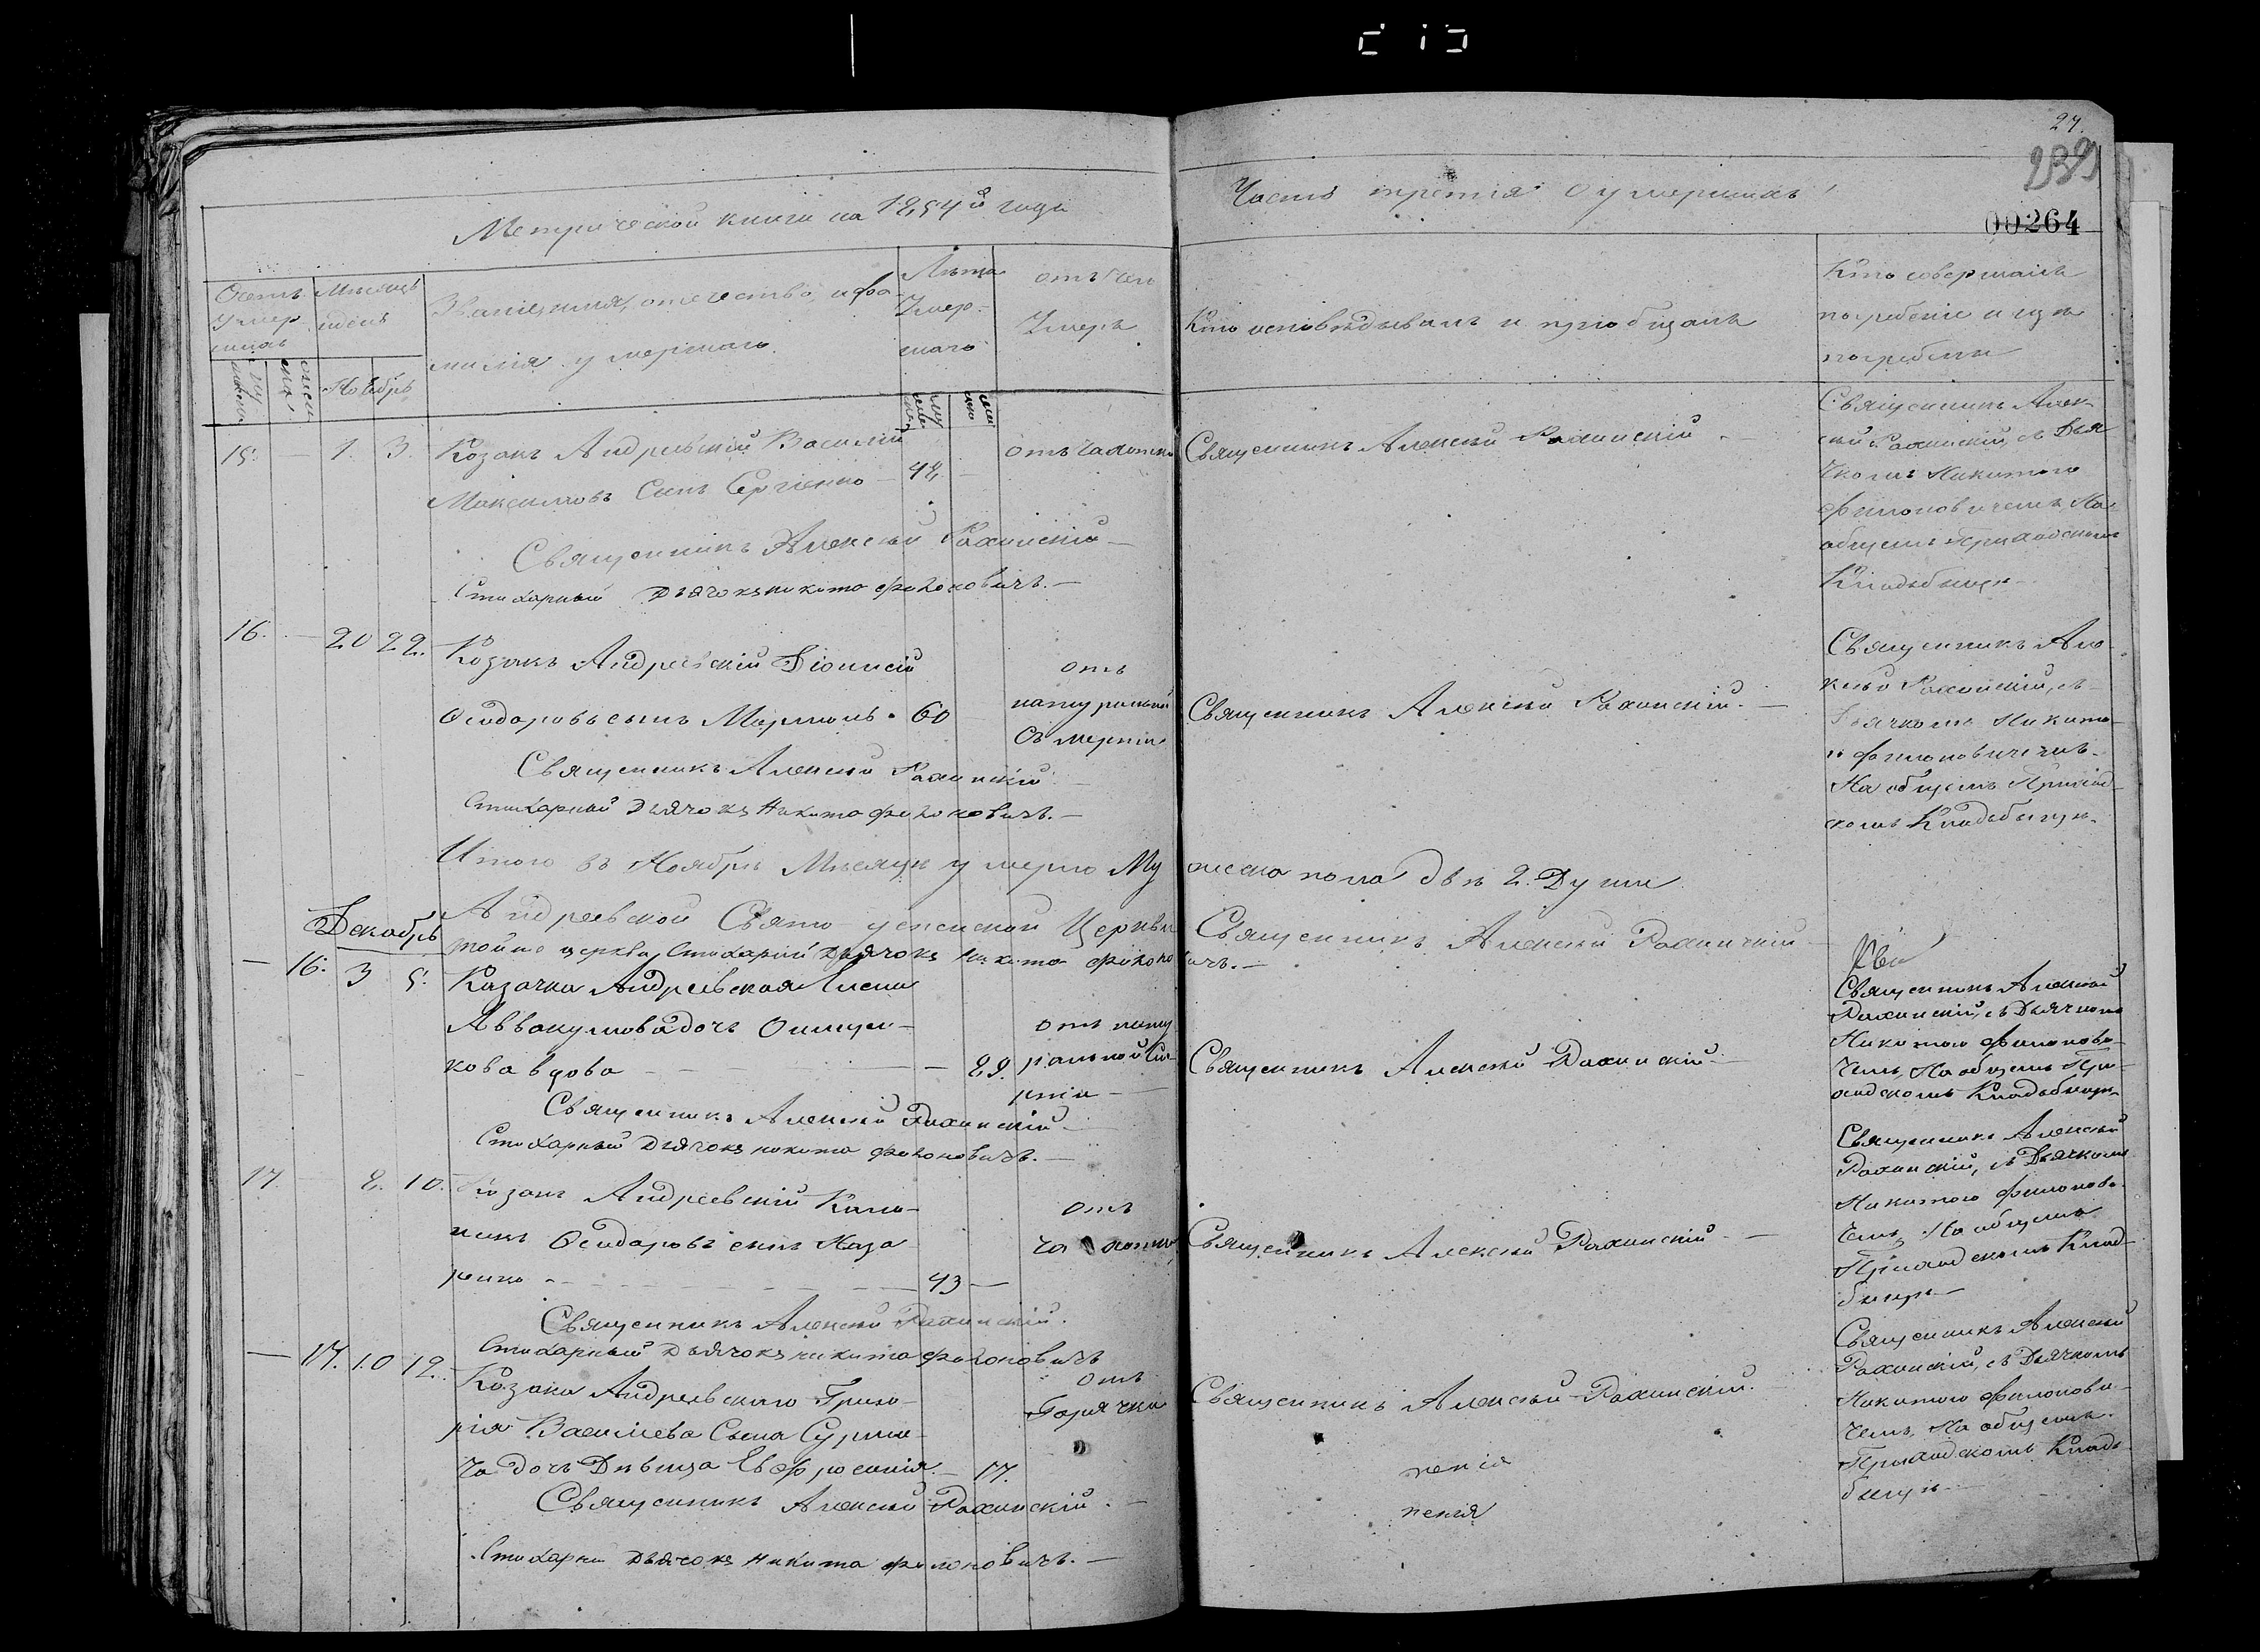 27.
239
00264
Метрической книги на 1854й годъ
Часть третія о умершихъ
Счетъ умершихъ
Мѣсяцъ и день
Званіе, имя, отчество, и фамилія умершаго
Лѣта Умершаго
отъ чего Умеръ
Кто исповѣдывалъ и пріобщалъ
Кто совершалъ погребеніе и гдѣ погребены
Ноябрь
15. — 1. 3. Козакъ Андреевскій Василій
Максимовъ Сынъ Сергіенко — 48. —
отъ чахотки
Священникъ Алексѣй Рахинскій —
Священникъ Алексѣй Рахинскій, съ Дьячкомъ Никитою Филоновичемъ, На общемъ Приходскомъ Кладбищѣ
Священникъ Алексѣй Рахинскій —
Стихарный Дьячокъ Никита Филоновичъ. —
16. — 20 22. Козакъ Андреевскій Діонисій
Феодоровъ сынъ 60
отъ натуральной Смерти
Священникъ Алексѣй Рахинскій. —
Священникъ Алексѣй Рахинскій, съ Дьячкомъ Никитою Филоновичемъ. На общемъ Приходскомъ Кладбищѣ.
Священникъ Алексѣй Рахинскій
Стихарный Дьячокъ Никита Филоновичъ. —
Итого въ Ноябрѣ Мѣсяцѣ умерло Мужеска пола двѣ 2. Души
Андреевской Свято Успенской Церкви Священникъ Алексѣй Рахинскій
Декабрь
тойже церкви Стихарій Дьячокъ Никита Филоновичъ. —
— 16. 3 5. Казачка Андреевская Елена
Аввакумова дочь
кова вдова — 89.
отъ натуральной Смерти —
Священникъ Алексѣй Рахинскій —
Священникъ Алексѣй Рахинскій, съ Дьячкомъ Никитою Филоновичемъ, На общемъ Приходскомъ Кладбищѣ
Священникъ Алексѣй Рахинскій —
Стихарный Дьячокъ Никита Филоновичъ. —
17. 8. 10. Козакъ Андреевскій
Феодоровъ сынъ Назаренко — 43 —
отъ чахотки
Священникъ Алексѣй Рахинскій —
Священникъ Алексѣй Рахинскій, съ Дьячкомъ Никитою Филоновичемъ, На общемъ Приходскомъ Кладбищѣ —
Священникъ Алексѣй Рахинскій.
Стихарный Дьячокъ Никита Филоновичъ
— 17. 10 12. Козака Андреевскаго Григорія Василіева Сына
дочь Дѣвица Евфросинія. — 17.
отъ Горячки
Священникъ Алексѣй Рахинскій. —
Священникъ Алексѣй Рахинскій, съ Дьячкомъ Никитою Филоновичемъ, На общемъ Приходскомъ Кладбищѣ. —
Священникъ Алексѣй Рахинскій. —
Стихарни Дьячокъ Никита Филоновичъ. —